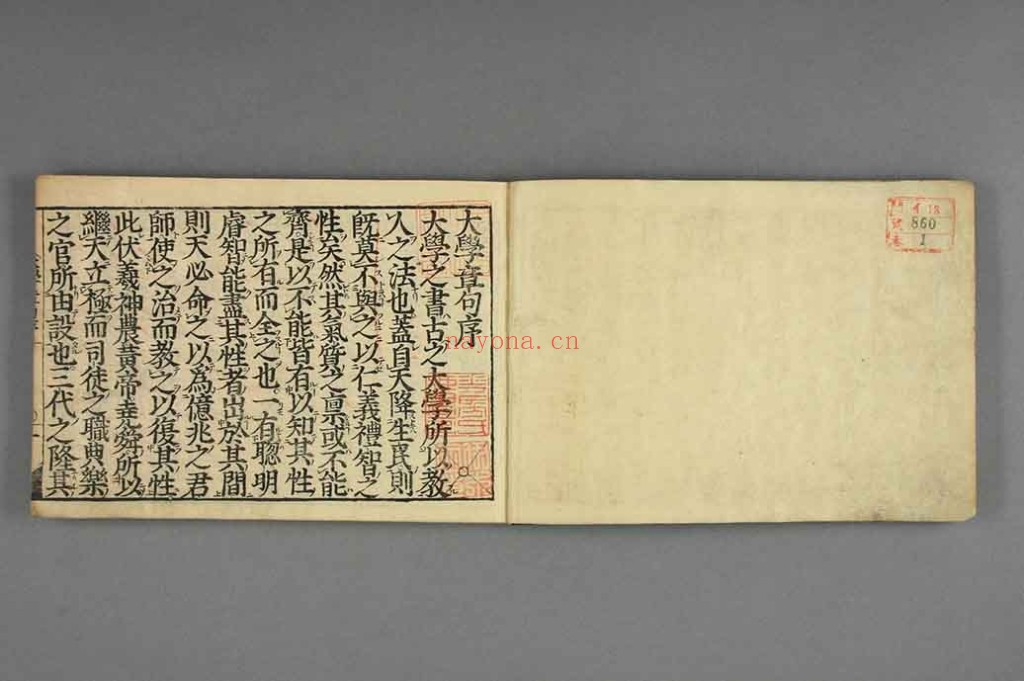 大學章句序
大學之書古之大學所以教
人之法也蓋自天降生民則
既莫不與之以仁義禮智之
性矣然其氣質之禀或不能
齊是以不能皆有以知其性
之所有而全之也一有聰明
睿智能盡其性者出於其間
則天必命之以為億兆之君
師使之治而教之以復其性
此伏羲神農黃帝堯舜所以
繼天立極而司徒之職典樂
之官所由設也三代之隆其
イ 18
860
1
nayona.cn